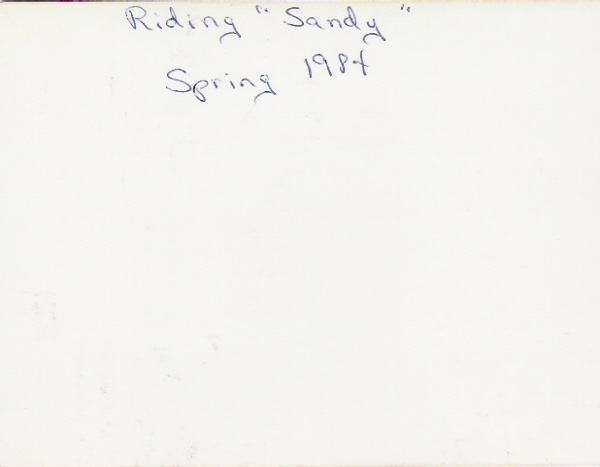 Riding "Sandy"
Spring 1984